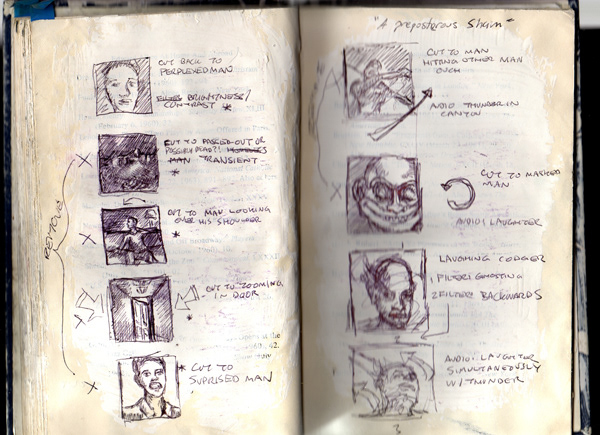 CUT BACK TO
PERPLEXED MAN
BRIGHTNESS/
CONTRAST *
CUT TO PASSED OUT OR
POSSIBLY DEAD?! HOMELESS
MAN TRANSIENT
*
CUT TO MAN LOOKING
OVER HIS SHOULDER
*
CUT TO ZOOMING
IN DOOR
*
* CUT TO
SUPRISED MAN
REMOVE
"A preposterous Sham"
CUT TO MAN
HITTING OTHER MAN
OUCH
AUDIO THUNDER IN
CANYON
CUT TO MASKED
MAN
AUDIO: LAUGHTER
1
LAUGHING CODGER
1 FILTER: GHOSTING
2 FILTER: BACKWARDS
2
AUDIO: LAUGHTER
SIMULTANEOUSLY
W/ THUNDER
3